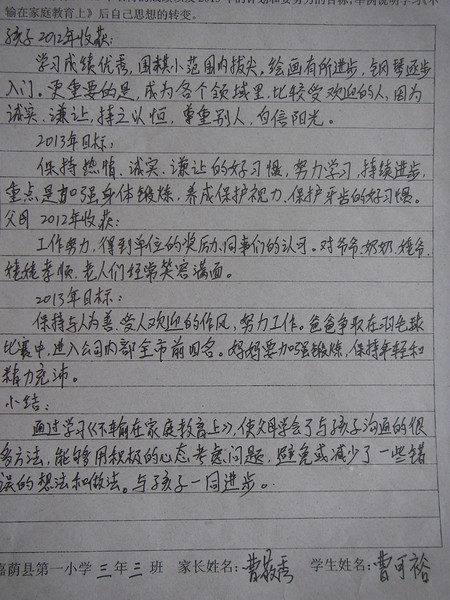 输在家庭教育上》后自己思想的转变。
孩子2012年收获:
学习成绩优秀,围棋小范围内拔尖。绘画有所进步,钢琴逐步
入门。更重要的是,成为各个领域里,比较受欢迎的人,因为
诚实,谦让,持之以恒,尊重别人,自信阳光。
2013年目标:
保持热情、诚实、谦让的好习惯,努力学习,持续进步,
重点是加强身体锻炼,养成保护视力、保护牙齿的好习惯。
父母2012年收获:
工作努力,得到单位的奖励,同事们的认可。对爷爷、奶奶、姥爷、
姥姥孝顺,老人们经常笑容满面。
2013年目标:
保持与人为善、受人欢迎的作风,努力工作。爸爸争取在羽毛球
比赛中,进入公司内部全市前四名。妈妈要加强锻炼,保持年轻和
精力充沛。
小结:
通过学习《不输在家庭教育上》,使父母学会了与孩子沟通的很
多方法,能够用积极的心态考虑问题,避免或减少了一些错
误的想法和做法。与孩子一同进步。
嘉荫县第一小学 三 年 三 班 家长姓名: 曹敬秀 学生姓名: 曹可裕